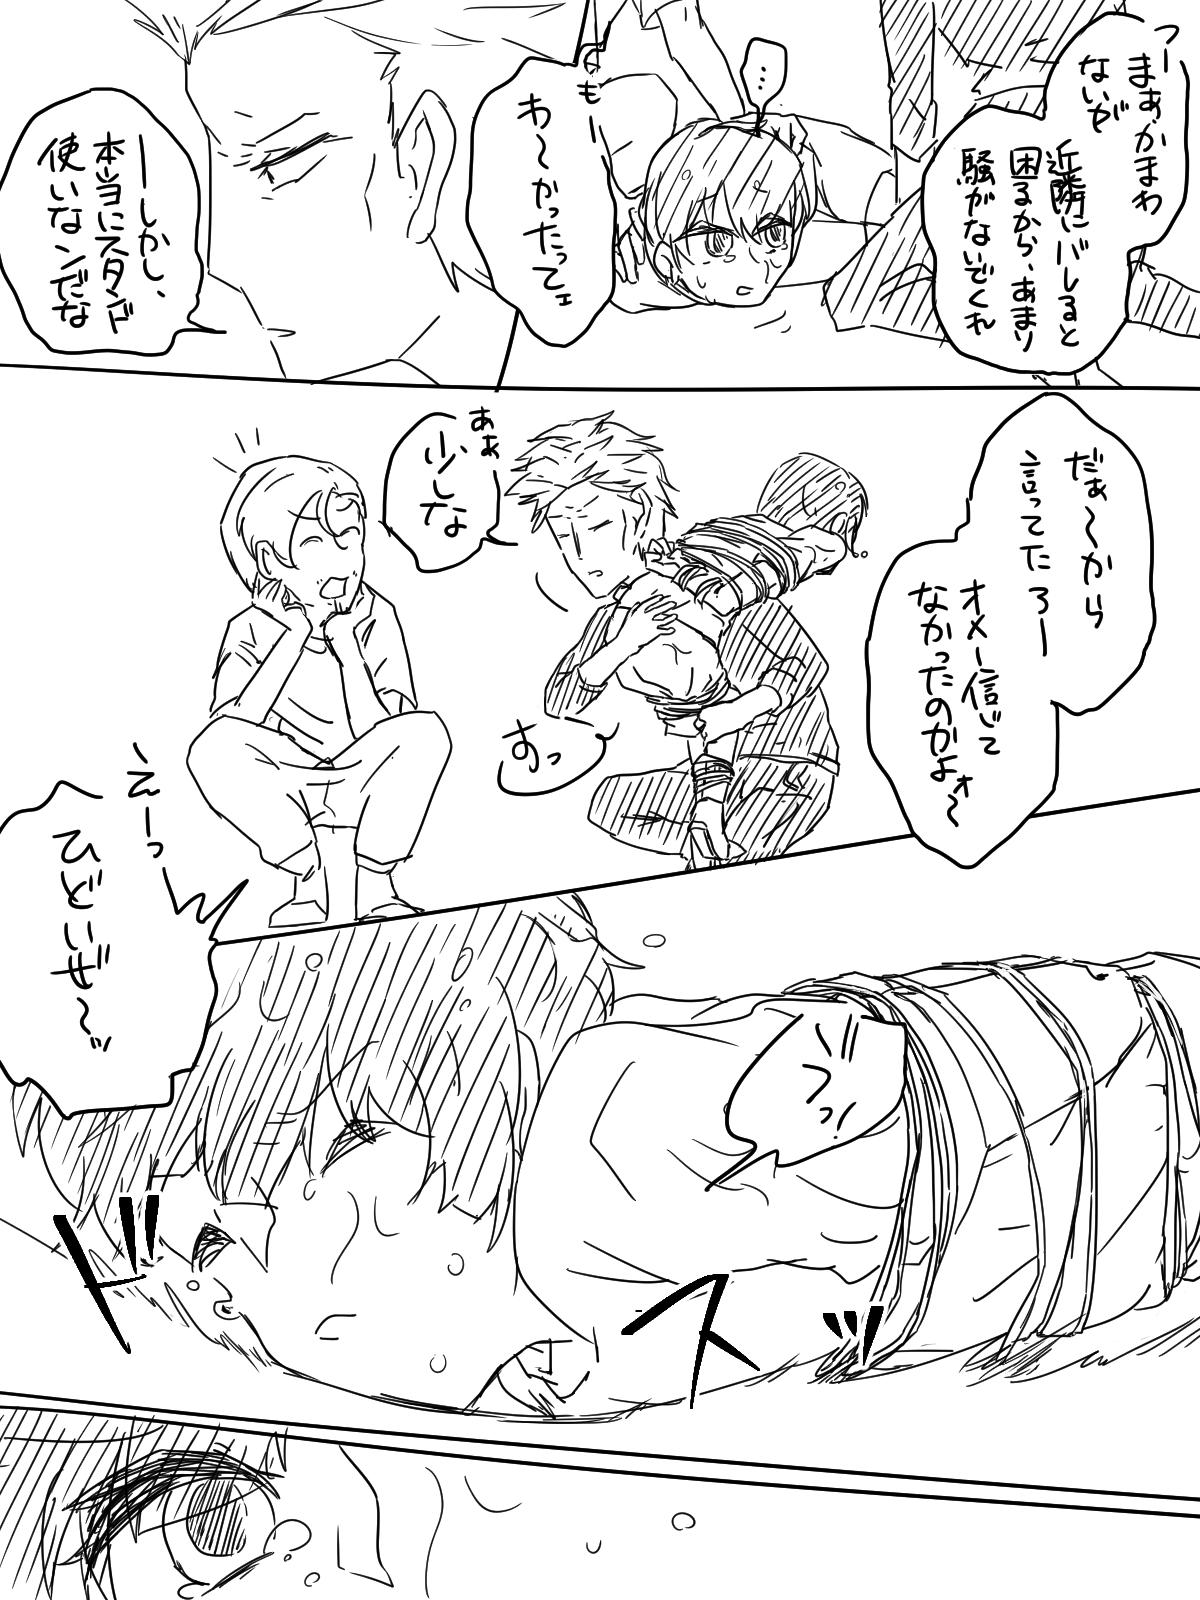 つーまぁかまわ
ないが
近隣にバレると
困るから、あまり
騒がないでくれ
…
も〜
わ〜かったってェ
ーしかし、
本当にスタンド
使いなンだな
だぁ〜から
言ってたろー
オメー信じて
なかったのかよォ〜
ああ
少しな
すっ
えーっ
ひどいぜ〜
ゔっ!
ドズッ